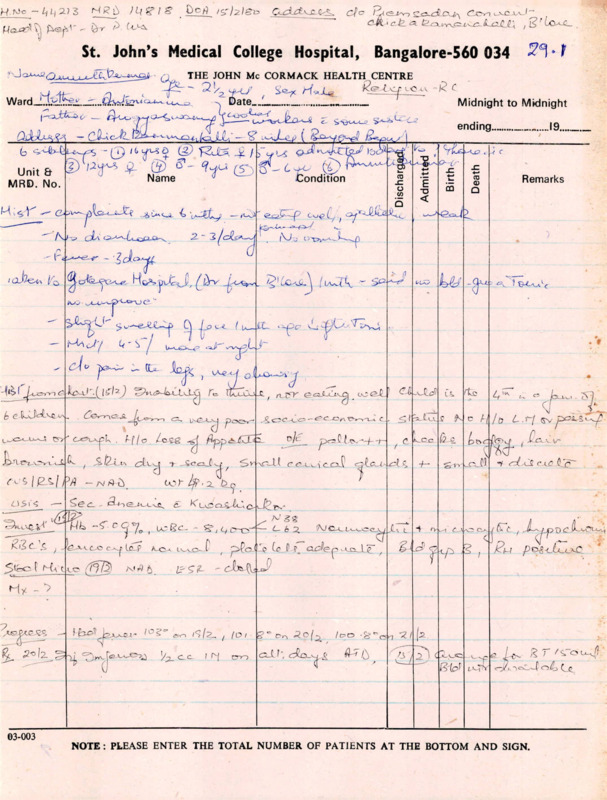 H.No - 44213 MRD 14818 DOA 15/2/80 Address c/o Premsadan Convent
Head of Dept - Dr P. Chickaramanahalli, B'lore
St. John's Medical College Hospital, Bangalore-560 034 29.1
THE JOHN Mc CORMACK HEALTH CENTRE
Name Age - 2 1/2 yrs, Sex Male Religion - RC
Ward Mother - Antoniamma Date Midnight to Midnight
Father - workers & some ending 19
Address - 8 miles (Beyond
6 siblings - ① 16 yrs ♀ ② Rita ♀ 15 yrs admitted today to
③ 12 yrs ♀ ④ ♂ - 9 yrs ⑤ ♂ - 6 yrs ⑥
Unit & MRD. No. Name Condition Discharged Admitted Birth Death Remarks
Hist - complaints since 6 mths - not eating well, apathetic, weak
- No diarrhoea 2-3/day, No vomiting
- Fever - 3 days
Taken to Hospital (Dr from B'lore) 1 mth - said no bld - gave Tonic
no improve
- slight swelling of face 1 mth ago Tonic
- Mict 4-5/ more at night
- c/o pain in the legs, very drowsy
Hist from chart (15/2) Inability to thrive, not eating well Child is the 4th in a fam. of
6 children. Comes from a very poor socio-economic status No H/o L.M or passing
worms or cough. H/o Loss of Appetite O/E pallor ++, cheeks baggy, hair
brownish, skin dry & scaly, small cervical glands + small & discrete
CVS/RS/PA - NAD. wt 8.2 kg.
- Sec. Anemia & Kwashiorkor
Invest 15/2 Hb - 5.0 9%, WBC - 8,400 < N 38 L 62 Normocytic & microcytic, hypochrom
RBC's, leucocytes normal, platelets adequate, Bld grp B, RH positive
Stool Micro 19/2 NAD. ESR - clotted
Mx - ?
Progress - Had fever 103° on 19/2, 101.8° on 20/2 100.8° on 21/2
Rx 20/2 Inj Imferon 1/2 cc IM on alt. days ATD, 15/2 Arrange for BT 150 ml
Bld not available
03-003
NOTE : PLEASE ENTER THE TOTAL NUMBER OF PATIENTS AT THE BOTTOM AND SIGN.